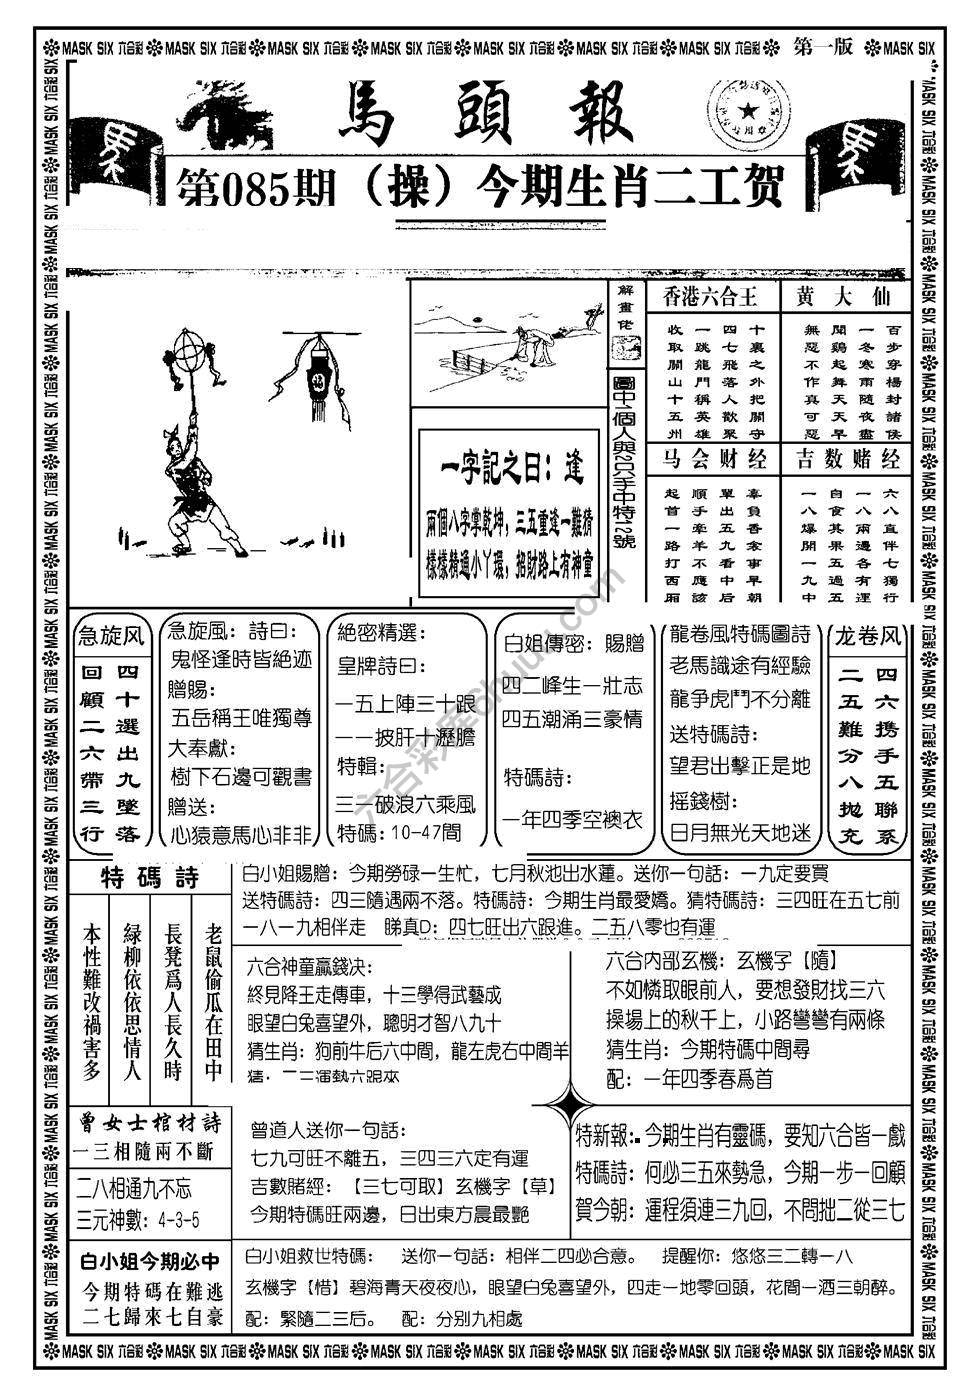 MASK SIX 六合彩 MASK SIX 六合彩 MASK SIX 六合彩 MASK SIX 六合彩 MASK SIX 六合彩 MASK SIX 六合彩 MASK SIX 六合彩 第一版 MASK SIX
馬頭報
第085期（操）今期生肖二工贺
解畫佬
圖中,個人與2只手中特12號
一字記之曰：逢
兩個八字掌乾坤，三五重逢一難猜
樣樣精通小丫環，招財路上有神童
香港六合王
十裏之外把關守
四七飛落人歡聚
一跳龍門稱英雄
收取關山十五州
黄大仙
百步穿楊封諸侯
一冬寒雨隨夜盡
聞鷄起舞天天早
無惡不作真可惡
马会财经
辜負香衾事早朝
單出五九看中后
順手牽羊不應該
起首一路打西厢
吉数赌经
六八直伴七獨行
一八兩邊各有運
自食其果五過五
一八爆開一九中
急旋风
四十選出九墜落
回顧二六帶三行
急旋風：詩曰：
鬼怪逢時皆絶迹
贈賜：
五岳稱王唯獨尊
大奉獻：
樹下石邊可觀書
贈送：
心猿意馬心非非
絶密精選：
皇牌詩曰：
一五上陣三十跟
一一披肝十瀝膽
特輯：
三一破浪六乘風
特碼：10-47間
白姐傳密：賜贈
四二峰生一壯志
四五潮涌三豪情
特碼詩：
一年四季空襖衣
龍卷風特碼圖詩
老馬識途有經驗
龍爭虎鬥不分離
送特碼詩：
望君出擊正是地
摇錢樹：
日月無光天地迷
龙卷风
四六携手五聯系
二五難分八抛充
特碼詩
老鼠偷瓜在田中
長凳爲人長久時
緑柳依依思情人
本性難改禍害多
白小姐賜贈：今期勞碌一生忙，七月秋池出水蓮。送你一句話：一九定要買
送特碼詩：四三隨遇兩不落。特碼詩：今期生肖最愛嬌。猜特碼詩：三四旺在五七前
一八一九相伴走　睇真D：四七旺出六跟進。二五八零也有運
六合神童贏錢决：
終見降王走傳車，十三學得武藝成
眼望白兔喜望外，聰明才智八九十
猜生肖：狗前牛后六中間，龍左虎右中間羊
六合内部玄機：玄機字【隨】
不如憐取眼前人，要想發財找三六
操場上的秋千上，小路彎彎有兩條
猜生肖：今期特碼中間尋
配：一年四季春爲首
曾女士棺材詩
一三相隨兩不斷
二八相通九不忘
三元神數：4-3-5
曾道人送你一句話：
七九可旺不離五，三四三六定有運
吉數賭經：【三七可取】玄機字【草】
今期特碼旺兩邊，日出東方晨最艷
特新報：今期生肖有靈碼，要知六合皆一戲
特碼詩：何必三五來勢急，今期一步一回顧
賀今朝：運程須連三九回，不問拙二從三七
白小姐今期必中
今期特碼在難逃
二七歸來七自豪
白小姐救世特碼：　送你一句話：相伴二四必合意。　提醒你：悠悠三二轉一八
玄機字【惜】碧海青天夜夜心，眼望白兔喜望外，四走一地零回頭，花間一酒三朝醉。
配：緊隨二三后。　配：分别九相處
MASK SIX 六合彩 MASK SIX 六合彩 MASK SIX 六合彩 MASK SIX 六合彩 MASK SIX 六合彩 MASK SIX 六合彩 MASK SIX 六合彩 MASK SIX 六合彩 MASK SIX